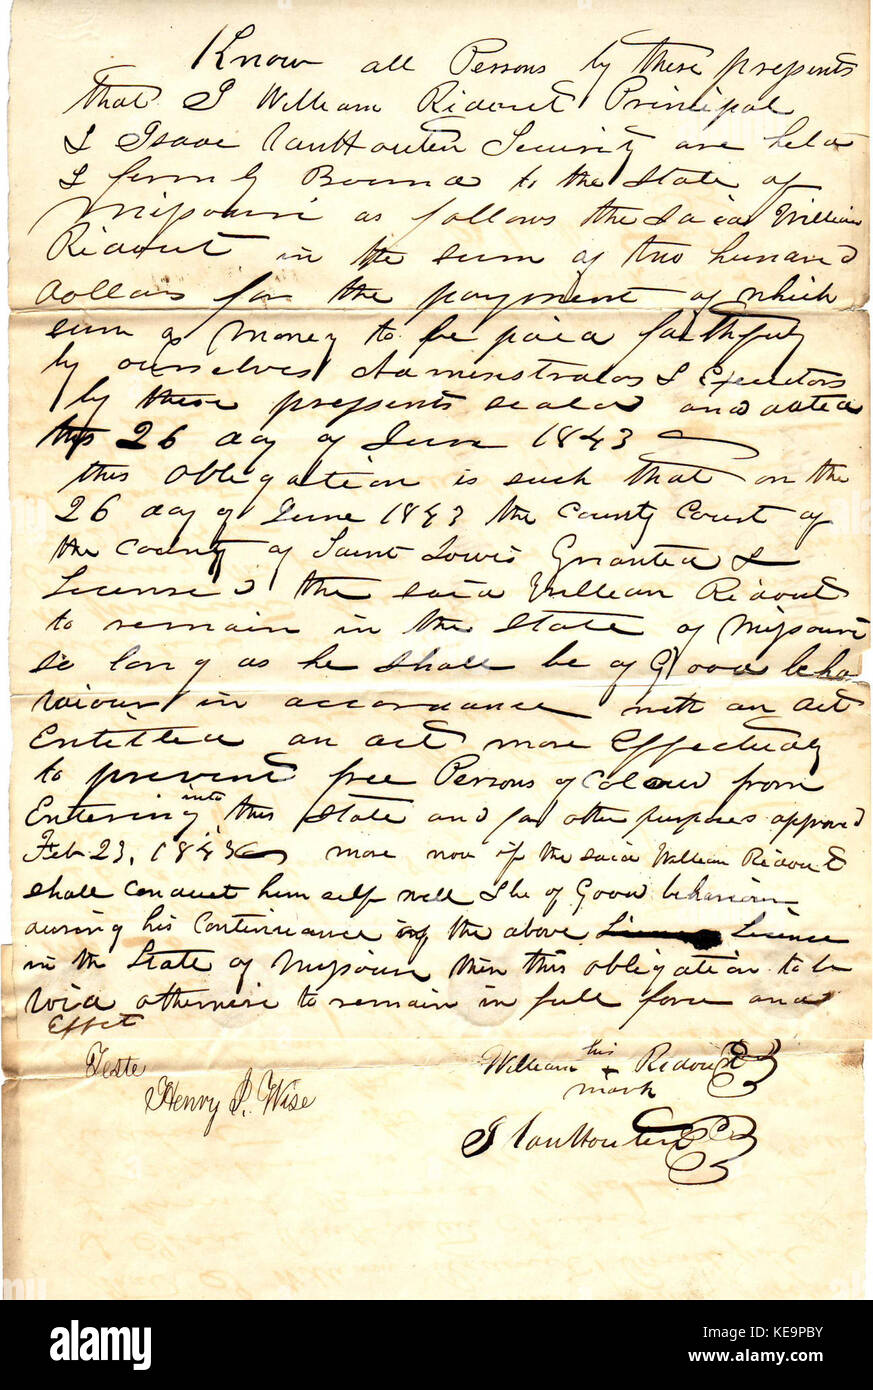 Know all Persons by these presents
that I William Ridout Principal
& Isaac VanHouten Security are held
& firmly Bound to the State of
Missouri as follows the said William
Ridout in the sum of two hundred
dollars for the payment of which
sum of Money to be paid faithfully
by ourselves Administrators & Executors
by these presents sealed and dated
this 26 day of June 1843
this obligation is such that on the
26 day of June 1843 the County Court of
the County of Saint Louis Granted &
Licensed the said William Ridout
to remain in the State of Missouri
so long as he shall be of Good beha
viour in accordance with an act
Entitled an act more Effectualy
to prevent free Persons of Colour from
Entering into this State and for other purposes approved
Feb 23, 1843 more now if the said William Ridout
shall conduct himself well & be of Good behaviour
during his Continuance of the above Licence
in the State of Missouri then this obligation to be
void otherwise to remain in full force and
Effect
Teste
Henry S. Wise
William his Ridout
mark
I VanHouten
alamy
Image ID: KE9PBY
www.alamy.com